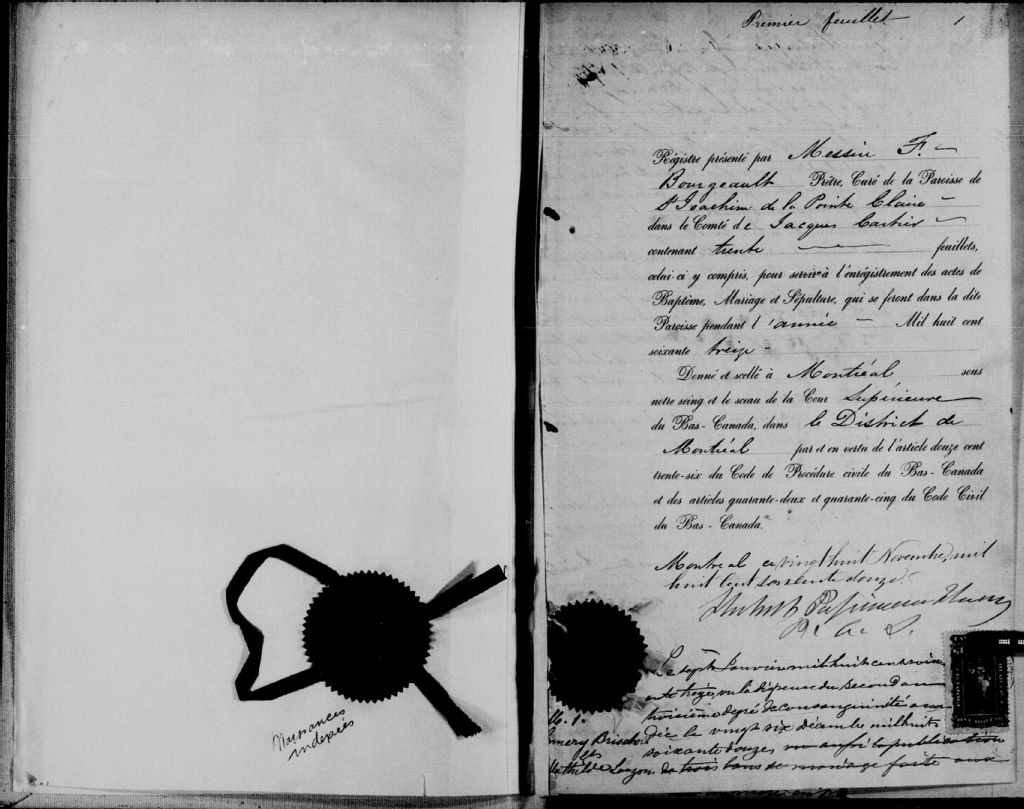 Naissances
indexés
Premier feuillet 1
Régistre présenté par Messire F.
Bourgeault Prêtre, Curé de la Paroisse de
St Joachim de la Pointe Claire
dans le Comté de Jacques Cartier
contenant trente feuillets,
celui-ci y compris, pour servir à l'enrégistrement des actes de
Baptême, Mariage et Sépulture, qui se feront dans la dite
Paroisse pendant l'année Mil huit cent
soixante treize
Donné et scellé à Montréal sous
notre seing et le sceau de la Cour Supérieure
du Bas-Canada, dans le District de
Montréal par et en vertu de l'article douze cent
trente-six du Code de Procédure civile du Bas-Canada
et des articles quarante-deux et quarante-cinq du Code Civil
du Bas-Canada.
Montreal ce vingt huit Novembre, mil
huit cent soixante douze.
Papineau
Le sept Janvier mil huit cent soixante
treize, vu la dispense du second au
troisième degré de consanguinité
M. 1.
le vingt six décembre mil huit
Brisebois
soixante douze, vu aussi la publication
et
Mathilde Lauzon
de trois bans de mariage faite